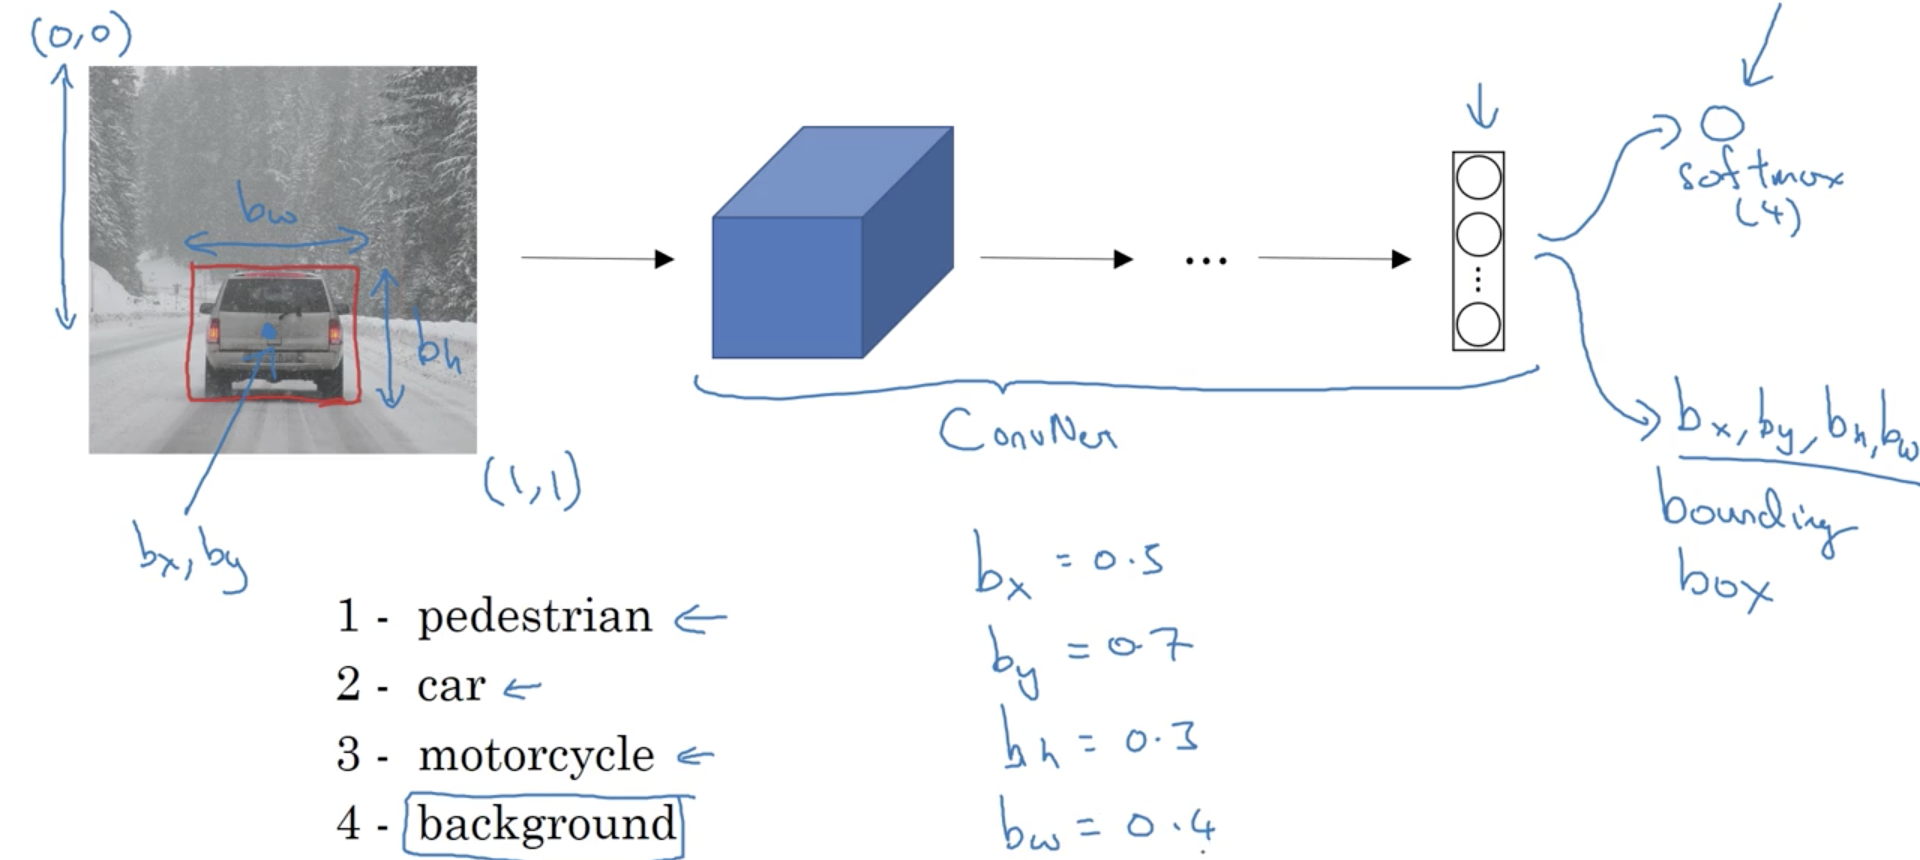 (0,0)
bw
bh
(1,1)
bx, by
...
ConvNet
softmax
(4)
bx, by, bh, bw
bounding
box
1 - pedestrian
2 - car
3 - motorcycle
4 - background
bx = 0.5
by = 0.7
bh = 0.3
bw = 0.4